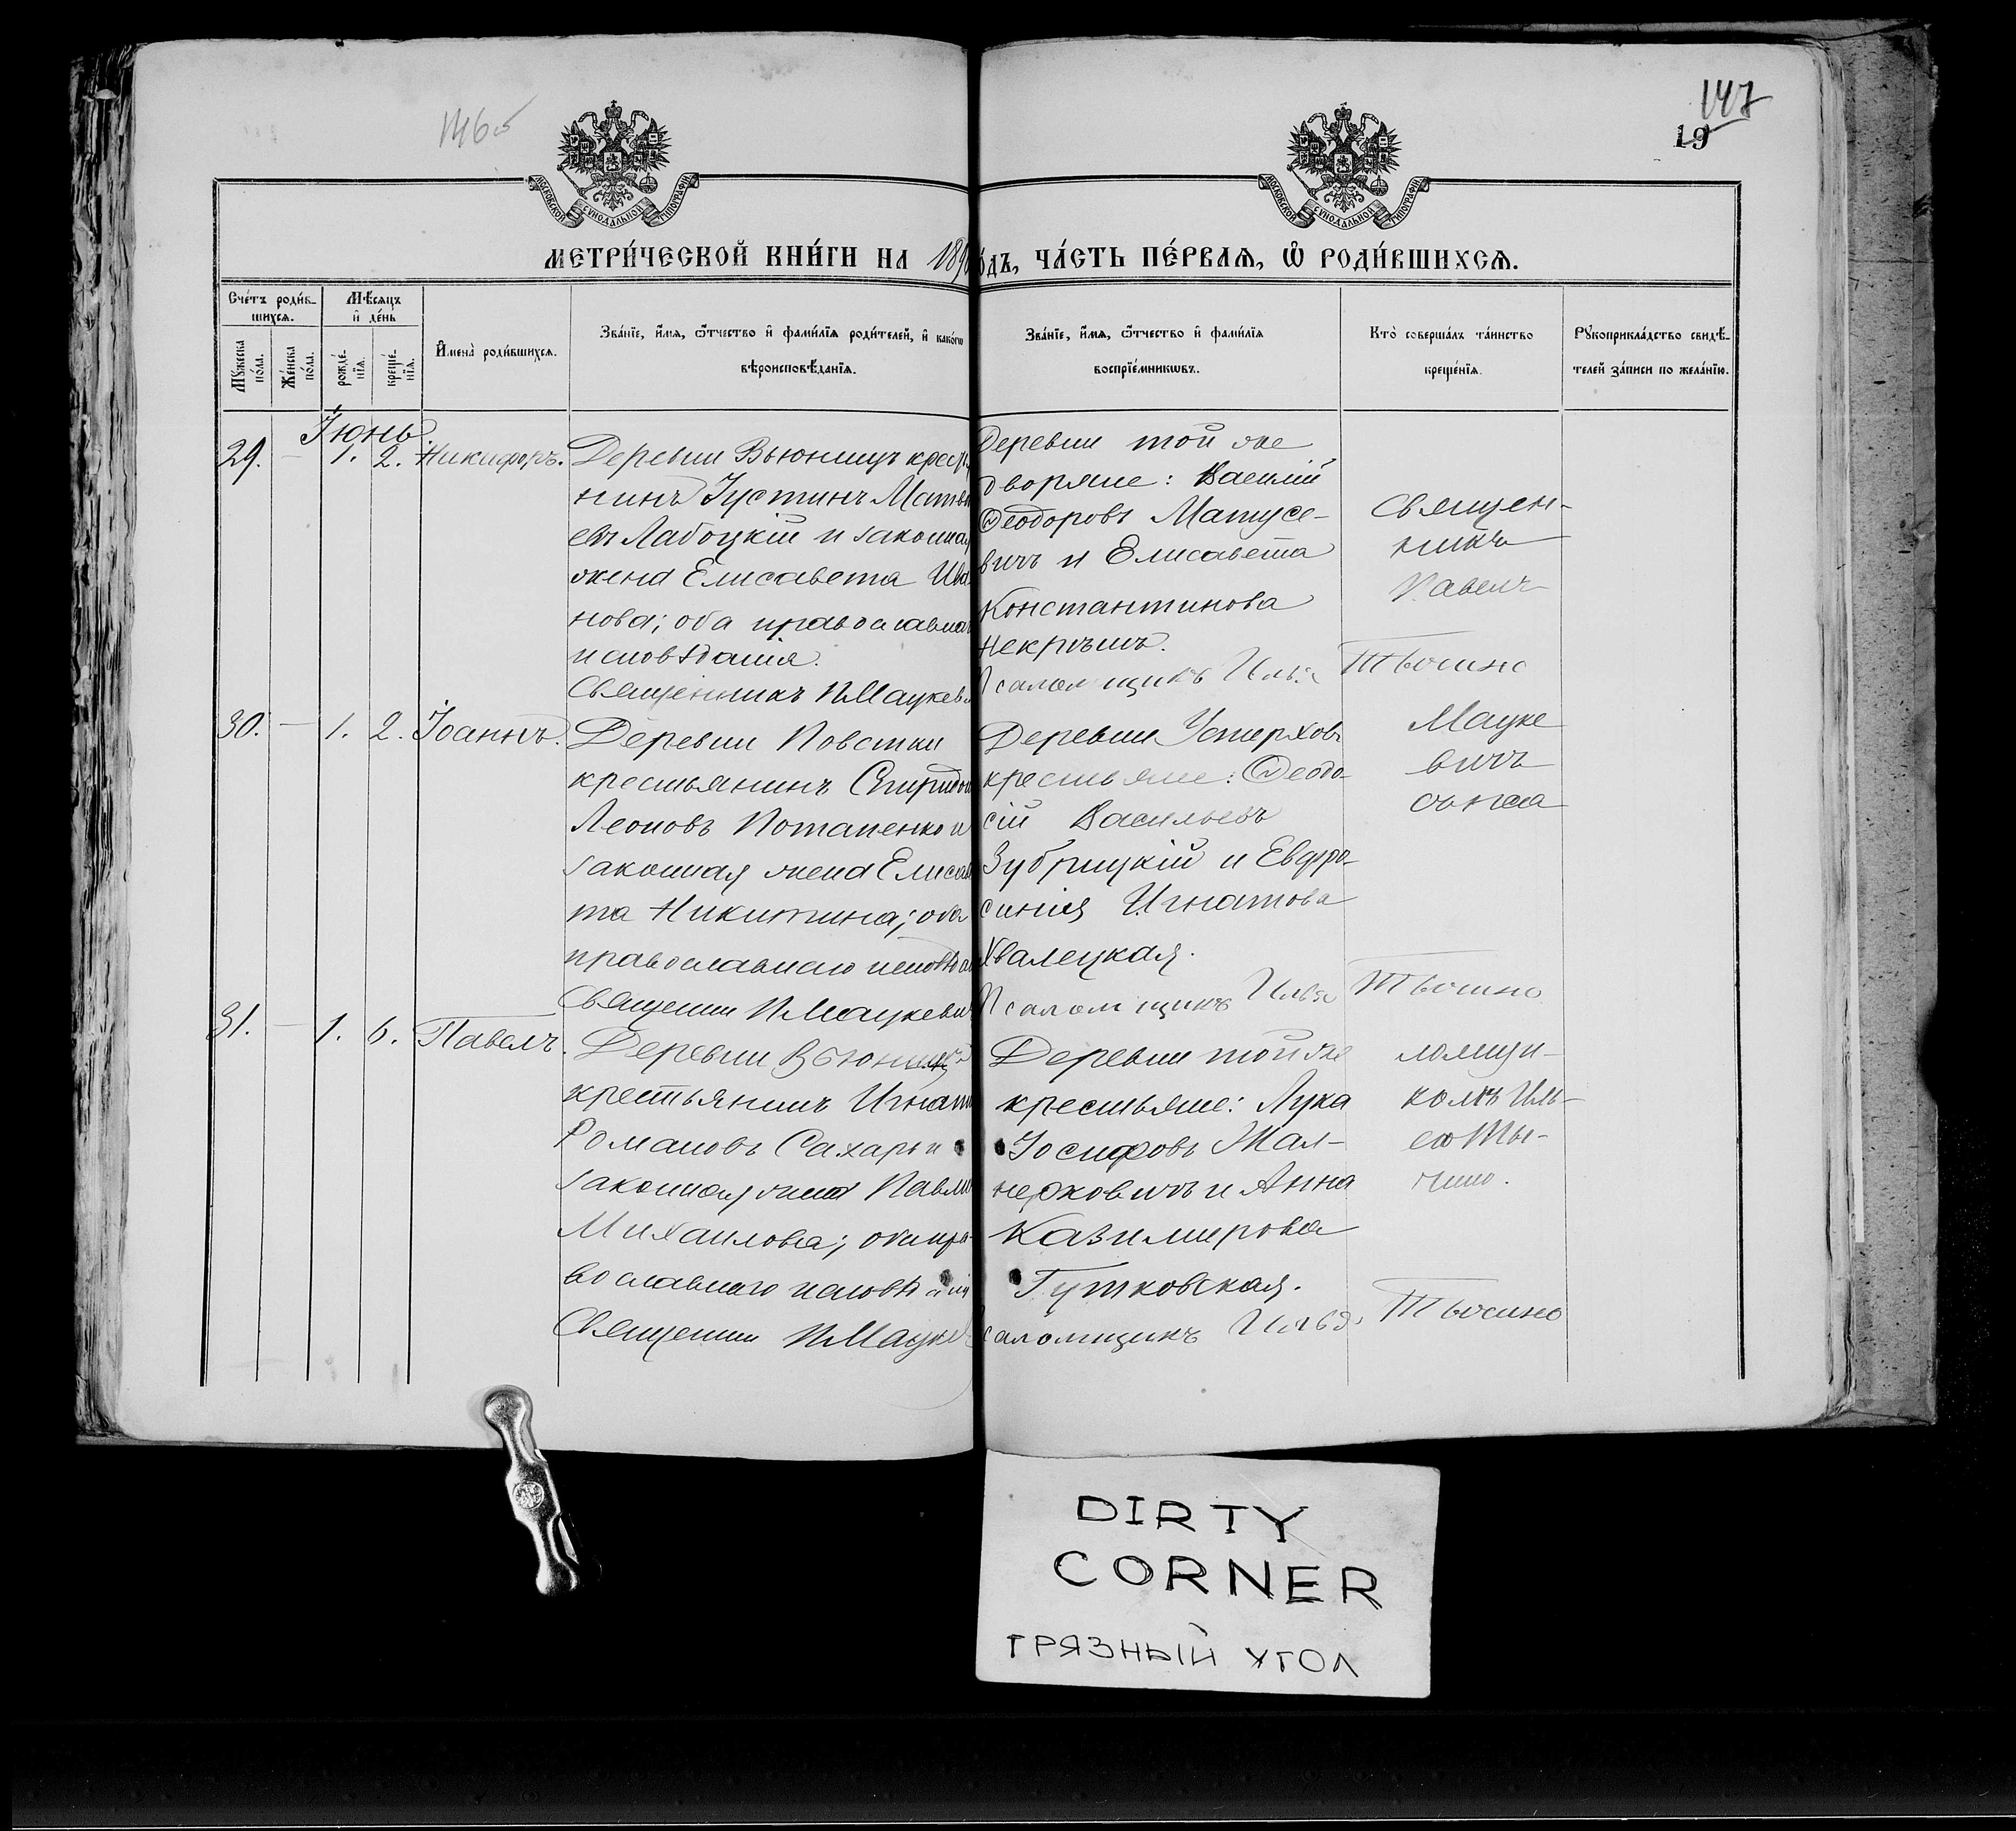 146об
147
19
МОСКОВСКОЙ СѴНОДАЛЬНОЙ ТИПОГРАФІИ
МОСКОВСКОЙ СѴНОДАЛЬНОЙ ТИПОГРАФІИ
МЕТРИ́ЧЕСКОЙ КНИ́ГИ НА 189
ДЪ, ЧА́СТЬ ПЕ́РВАѦ, Ѡ҆ РОДИ́ВШИХСѦ.
Сче́тъ роди́в-
шихсѧ.
Мꙋ́жеска по́ла.
Же́нска по́ла.
Мѣ́сѧцъ
и҆ де́нь
рожде́-
нїѧ.
креще́-
нїѧ.
И҆мена̀ роди́вшихсѧ.
Зва́нїе, и҆́мѧ, ѻ҆́тчество и҆ фами́лїѧ роди́телей, и҆ како́гѡ
вѣроисповѣ́данїѧ.
Зва́нїе, и҆́мѧ, ѻ҆́тчество и҆ фами́лїѧ
воспрїе́мникѡвъ.
Кто̀ соверша́лъ та́инство
креще́нїѧ.
Рꙋкоприкла́дство свидѣ́-
телей за́писи по жела́нїю.
Іюнь.
29. — 1. 2. Никифоръ.
Деревни Вьюнищъ крестья
нинъ Іустинъ Матвѣ
евъ Лабоцкій и законная
жена Елисавета Ива
нова; оба православнаго
исповѣданія.
Священникъ П Мацкеви
Деревни той же
дворяне: Василій
Ѳеодоровъ Матусе-
вичъ и Елисавета
Константинова
Некрышъ.
Псаломщикъ Илья Тычино
Священ-
никъ
Павелъ
Мацке
вичъ
съ пса
ломщи-
комъ Иль-
ею Ты-
чино.
30. — 1. 2. Іоаннъ.
Деревни Повстки
крестьянинъ Спиридонъ
Леоновъ Потапенко и
законная жена Елисаве
та Никитина; оба
православнаго исповѣдан
Священник П Мацкевич
Деревни Устерховъ
крестьяне: Ѳеодо-
сій Васильевъ
Зубрицкій и Евфро-
синія Игнатова
Хвалецкая.
Псаломщикъ Илья Тычино
31. — 1. 6. Павелъ.
Деревни Вьюнищъ
крестьянинъ Игнат
Романовъ Сахаръ и
законная жена Павли
Михаилова; оба пра-
вославнаго исповѣданія
Священник П Мацке
Деревни той же
крестьяне: Лука
Іосифовъ Жал-
нерковичъ и Анна
Казимирова
Гутковская.
саломщикъ Илья Тычино
DIRTY
CORNER
ГРЯЗНЫЙ УГОЛ